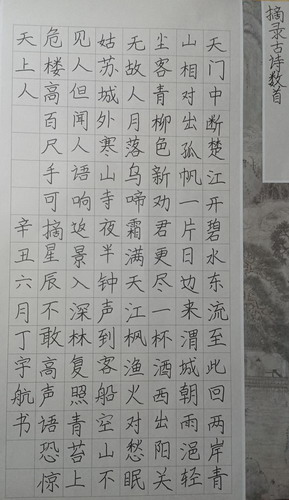 摘录古诗数首
天门中断楚江开碧水东流至此回两岸青
山相对出孤帆一片日边来渭城朝雨浥轻
尘客青柳色新劝君更尽一杯酒西出阳关
无故人月落乌啼霜满天江枫渔火对愁眠
姑苏城外寒山寺夜半钟声到客船空山不
见人但闻人语响返景入深林复照青苔上
危楼高百尺手可摘星辰不敢高声语恐惊
天上人 辛丑六月丁宇航书